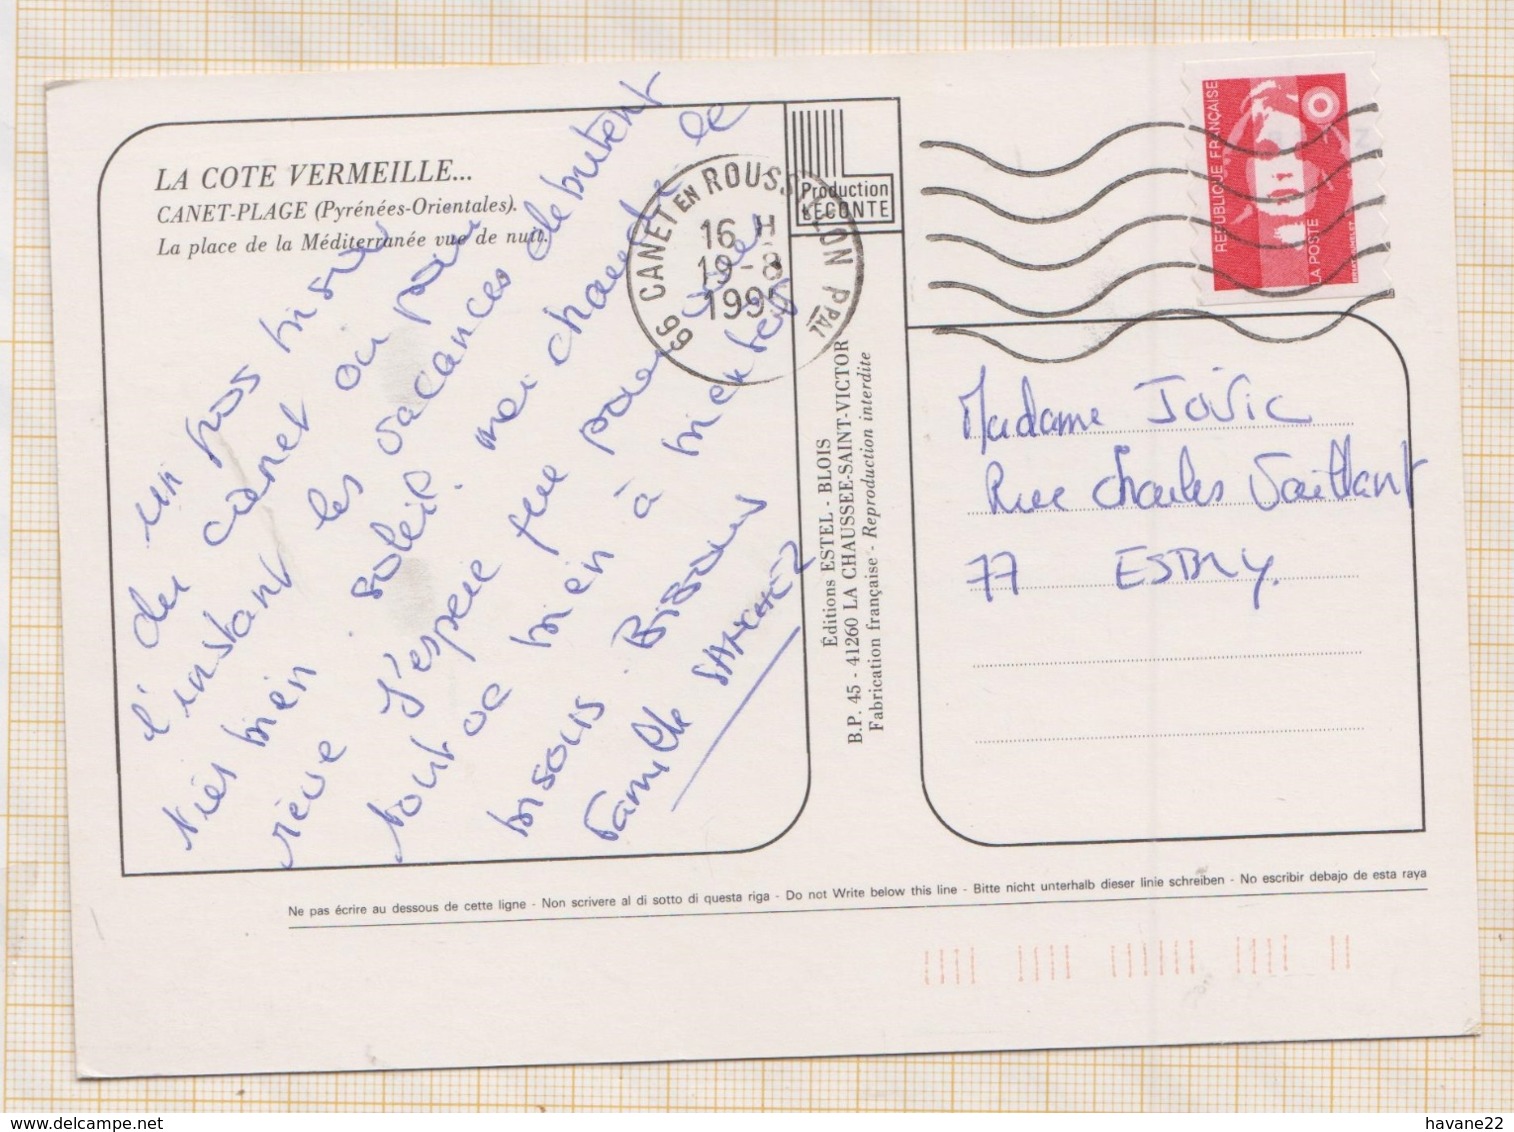 LA COTE VERMEILLE...
CANET-PLAGE (Pyrénées-Orientales).
La place de la Méditerranée vue de nuit.
un gros bisou
du canet où pour
l'instant les vacances débutent
très bien. soleil, mer chambre
rêve J'espère que pour vous
tout va bien à bientôt
bisous. Bisous
Famille SANCHEZ
Production
LECONTE
66 CANET EN ROUSSILLON PPAL
16 H
19-8
199
REPUBLIQUE FRANÇAISE
LA POSTE
Éditions ESTEL - BLOIS
B.P. 45 - 41260 LA CHAUSSEE-SAINT-VICTOR
Fabrication française - Reproduction interdite
Madame Jovic
Rue Charles Vaillant
77 ESBLY.
Ne pas écrire au dessous de cette ligne - Non scrivere al di sotto di questa riga - Do not Write below this line - Bitte nicht unterhalb dieser linie schreiben - No escribir debajo de esta raya
havane22